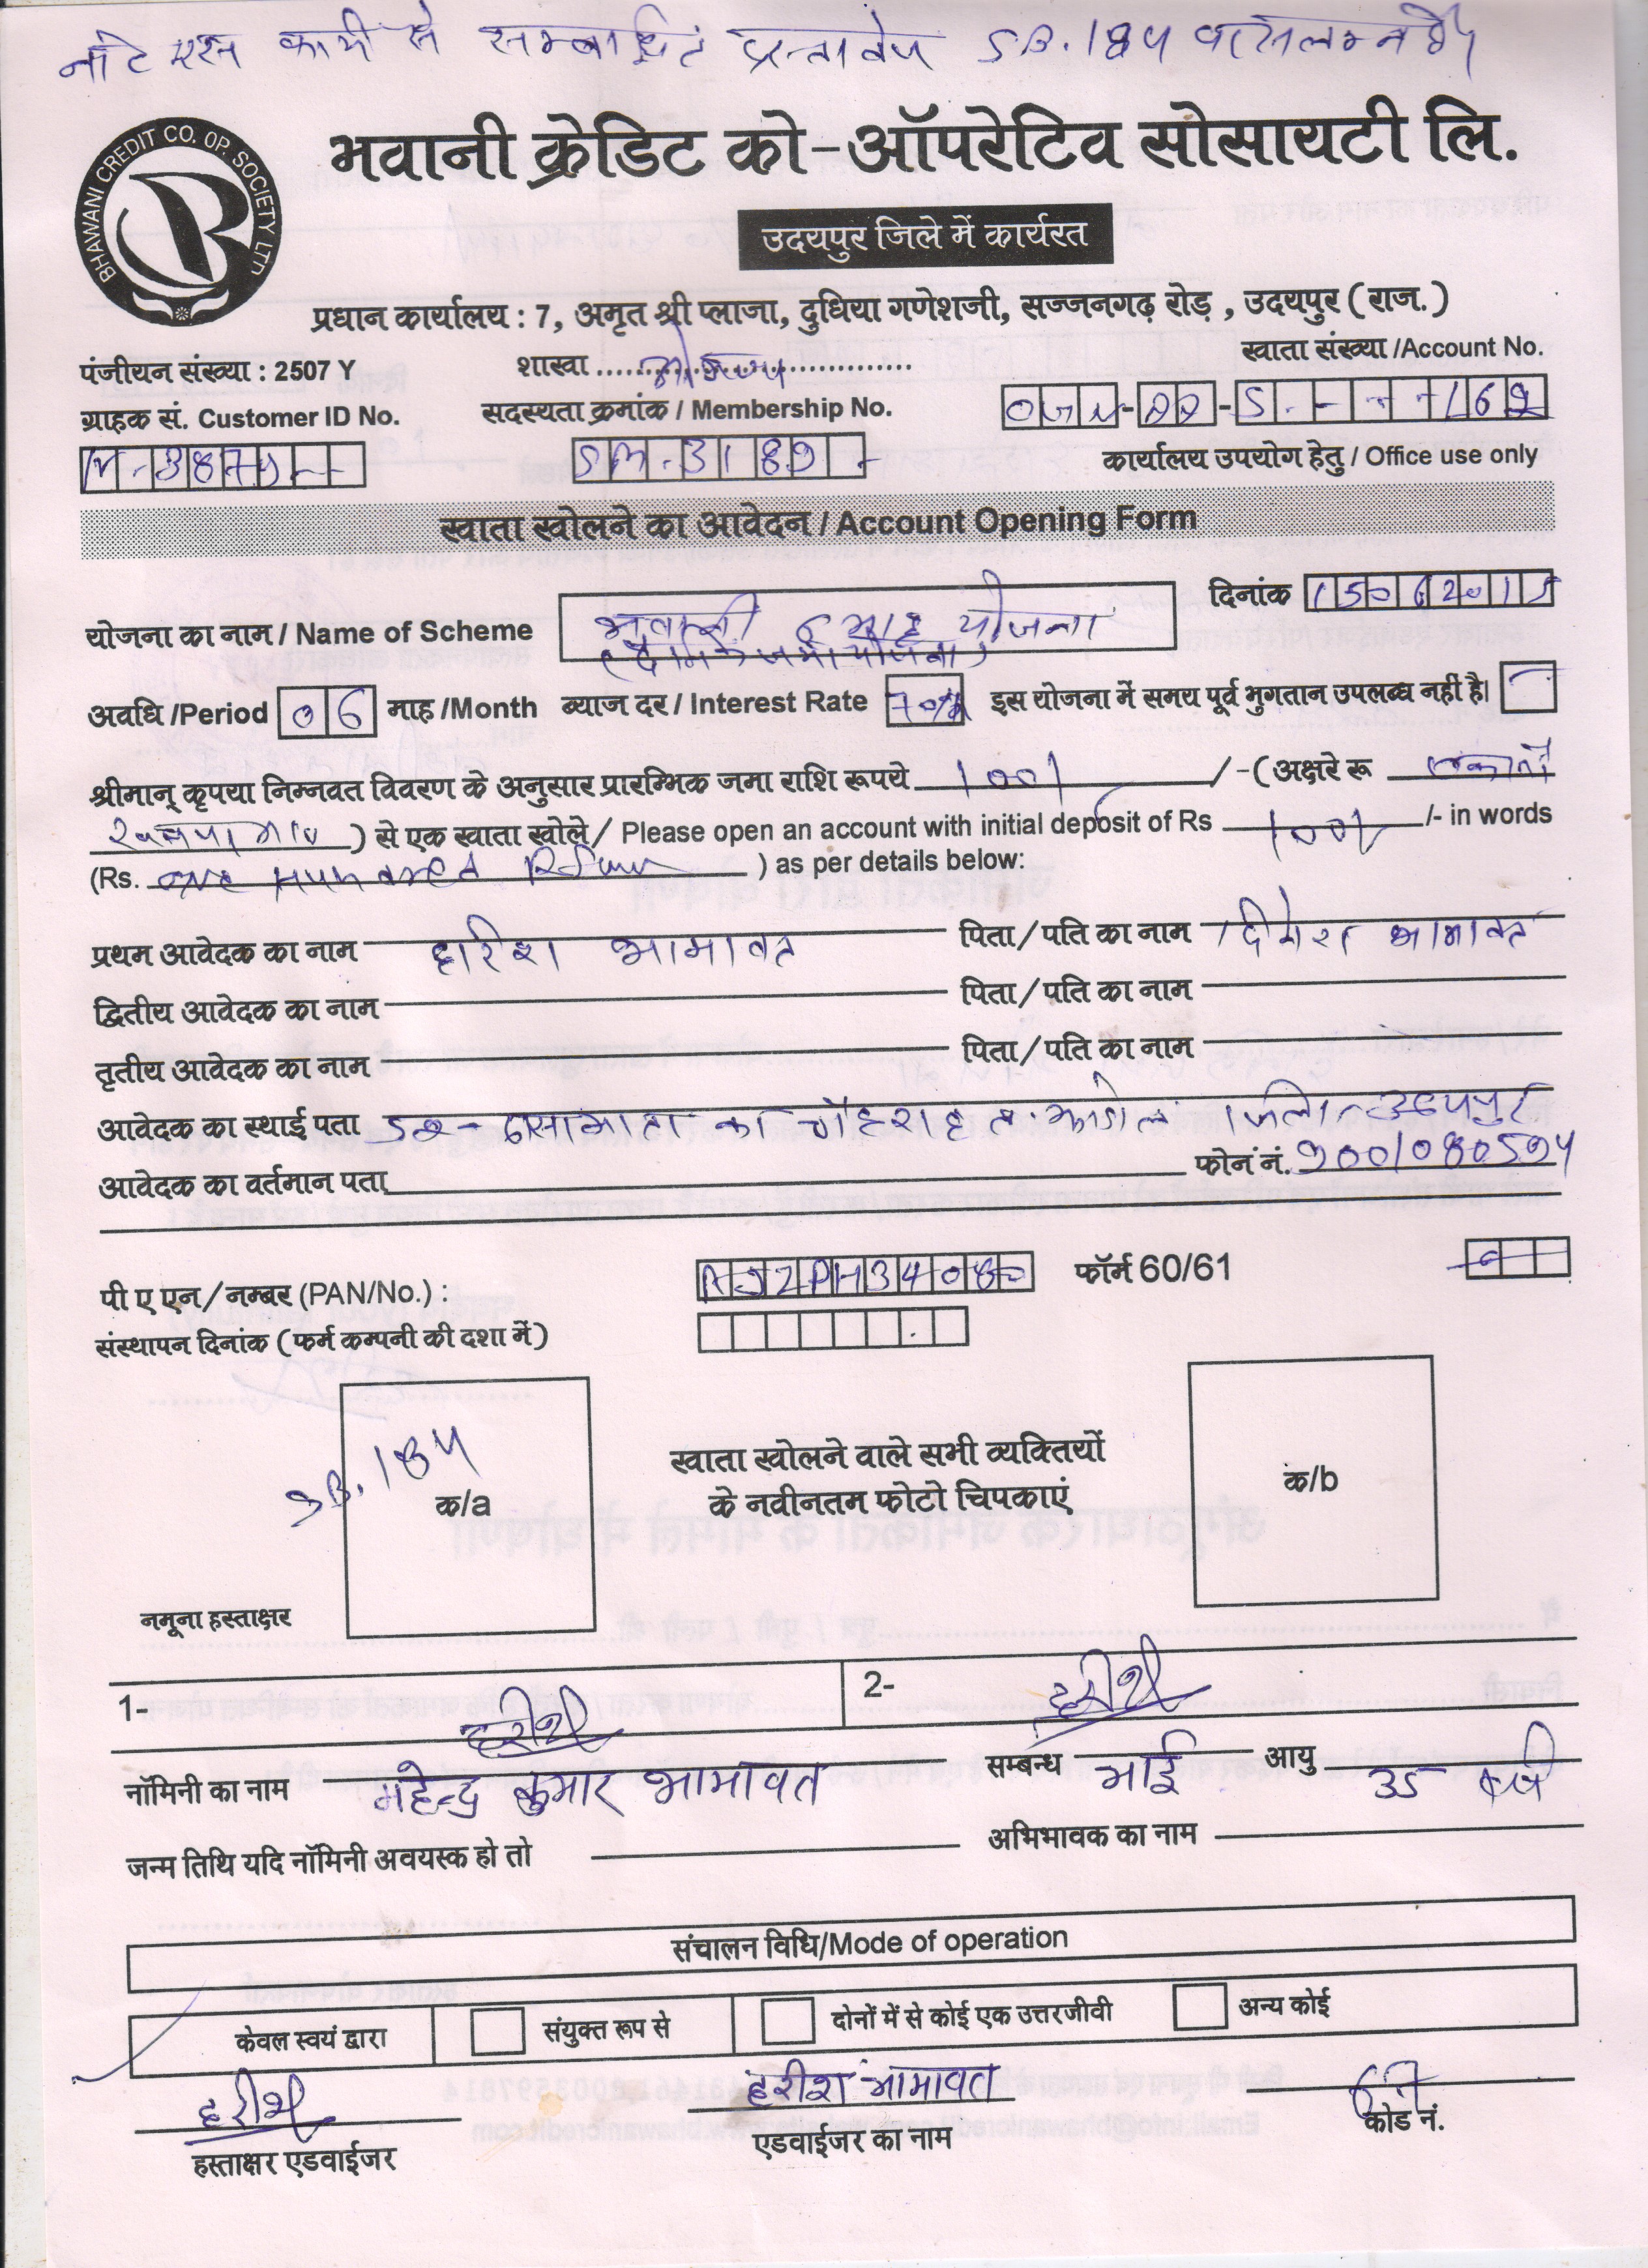 नोट इस फार्म से सम्बन्धित दस्तावेज S.B. 184 पर संलग्न है।
BHAWANI CREDIT CO. OP. SOCIETY LTD
भवानी क्रेडिट को-ऑपरेटिव सोसायटी लि.
उदयपुर जिले में कार्यरत
प्रधान कार्यालय : 7, अमृत श्री प्लाजा, दुधिया गणेशजी, सज्जनगढ़ रोड़ , उदयपुर ( राज. )
पंजीयन संख्या : 2507 Y शाखा खाता संख्या /Account No.
ग्राहक सं. Customer ID No. सदस्यता क्रमांक / Membership No.
SM-3189 - कार्यालय उपयोग हेतु / Office use only
खाता खोलने का आवेदन / Account Opening Form
दिनांक 15062015
योजना का नाम / Name of Scheme भवानी 6 माह योजना
(दैनिक जमा योजना)
अवधि /Period 06 माह /Month ब्याज दर / Interest Rate इस योजना में समय पूर्व भुगतान उपलब्ध नहीं है।
श्रीमान् कृपया निम्नवत विवरण के अनुसार प्रारम्भिक जमा राशि रूपये 100/ /-( अक्षरे रू
) से एक खाता खोले / Please open an account with initial deposit of Rs 100/ /- in words
(Rs. one Hundred ) as per details below:
प्रथम आवेदक का नाम हरिश भामावत पिता / पति का नाम दिनेश भामावत
द्वितीय आवेदक का नाम पिता / पति का नाम
तृतीय आवेदक का नाम पिता / पति का नाम
आवेदक का स्थाई पता झाडोल जिला-उदयपुर
आवेदक का वर्तमान पता फोन नं.
पी ए एन / नम्बर (PAN/No.) : फॉर्म 60/61
संस्थापन दिनांक ( फर्म कम्पनी की दशा में )
S.B. 184
क/a
खाता खोलने वाले सभी व्यक्तियों
के नवीनतम फोटो चिपकाएं
क/b
नमूना हस्ताक्षर
1- हरीश 2- हरीश
नॉमिनी का नाम महेन्द्र कुमार भामावत सम्बन्ध भाई आयु 35 वर्ष
जन्म तिथि यदि नॉमिनी अवयस्क हो तो अभिभावक का नाम
संचालन विधि/Mode of operation
केवल स्वयं द्वारा संयुक्त रूप से दोनों में से कोई एक उत्तरजीवी अन्य कोई
हरीश हरीश भामावत
हस्ताक्षर एडवाईजर एडवाईजर का नाम कोड नं.